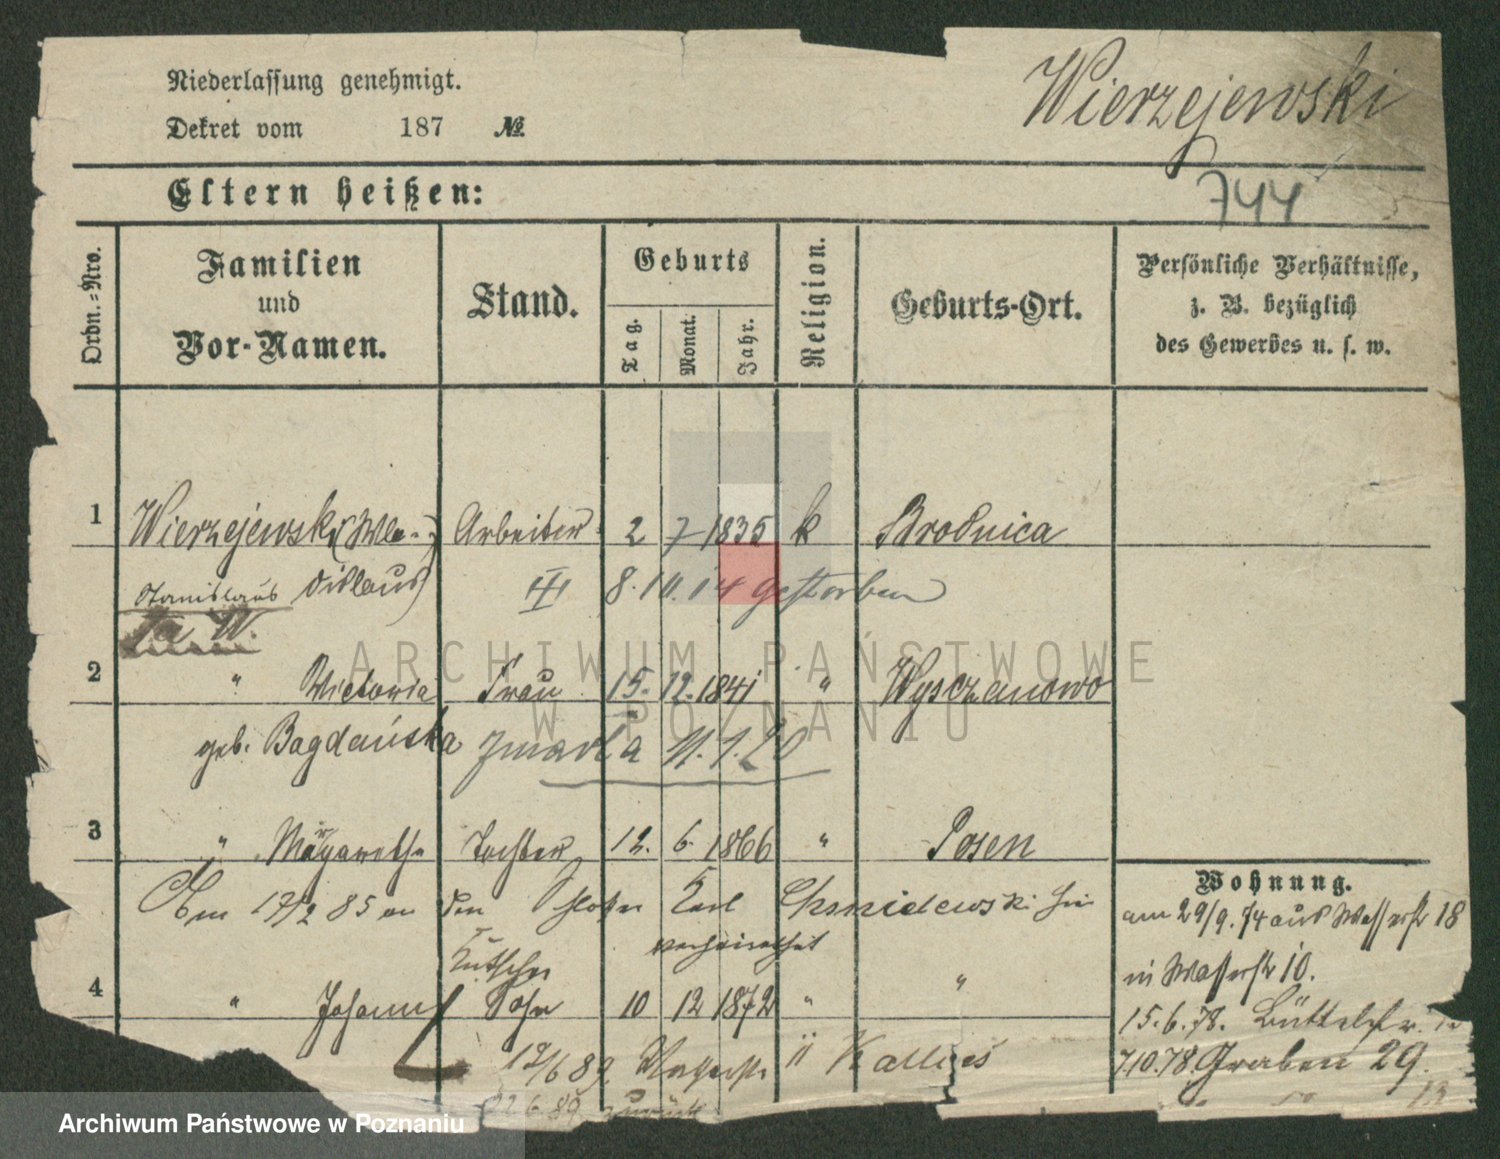 Niederlassung genehmigt.
Dekret vom 187 №
Wierzejewski
744
Eltern heißen:
Ordn.-Nro.
Familien und Vor-Namen.
Stand.
Geburts
Tag.
Monat.
Jahr.
Religion.
Geburts-Ort.
Persönliche Verhältnisse, z. B. bezüglich des Gewerbes u. s. w.
1 Wierzejewski (Wla- Arbeiter 2 7 1835 k Brodnica
Stanislaus dislaus) III 8.10.14 gestorben
2 " Victoria Frau 15. 12. 1841 " Wysczanowo
geb. Bagdańska zmarła 11.1.20
3 " Margarethe Tochter 12. 6. 1866 " Posen
Am 17/2 85 an den Karl
verheirathet
Kutscher
4 " Johann Sohn 10 12 1872 " "
12/6 89 " Kallies
22 6 89 zurück
Wohnung.
am 29/9. 74 aus Wasserstr 18
in Wasserstr 10.
15.6.78. Büttelstr.
7.10.78 Graben 29.
13
ARCHIWUM PAŃSTWOWE
W POZNANIU
Archiwum Państwowe w Poznaniu